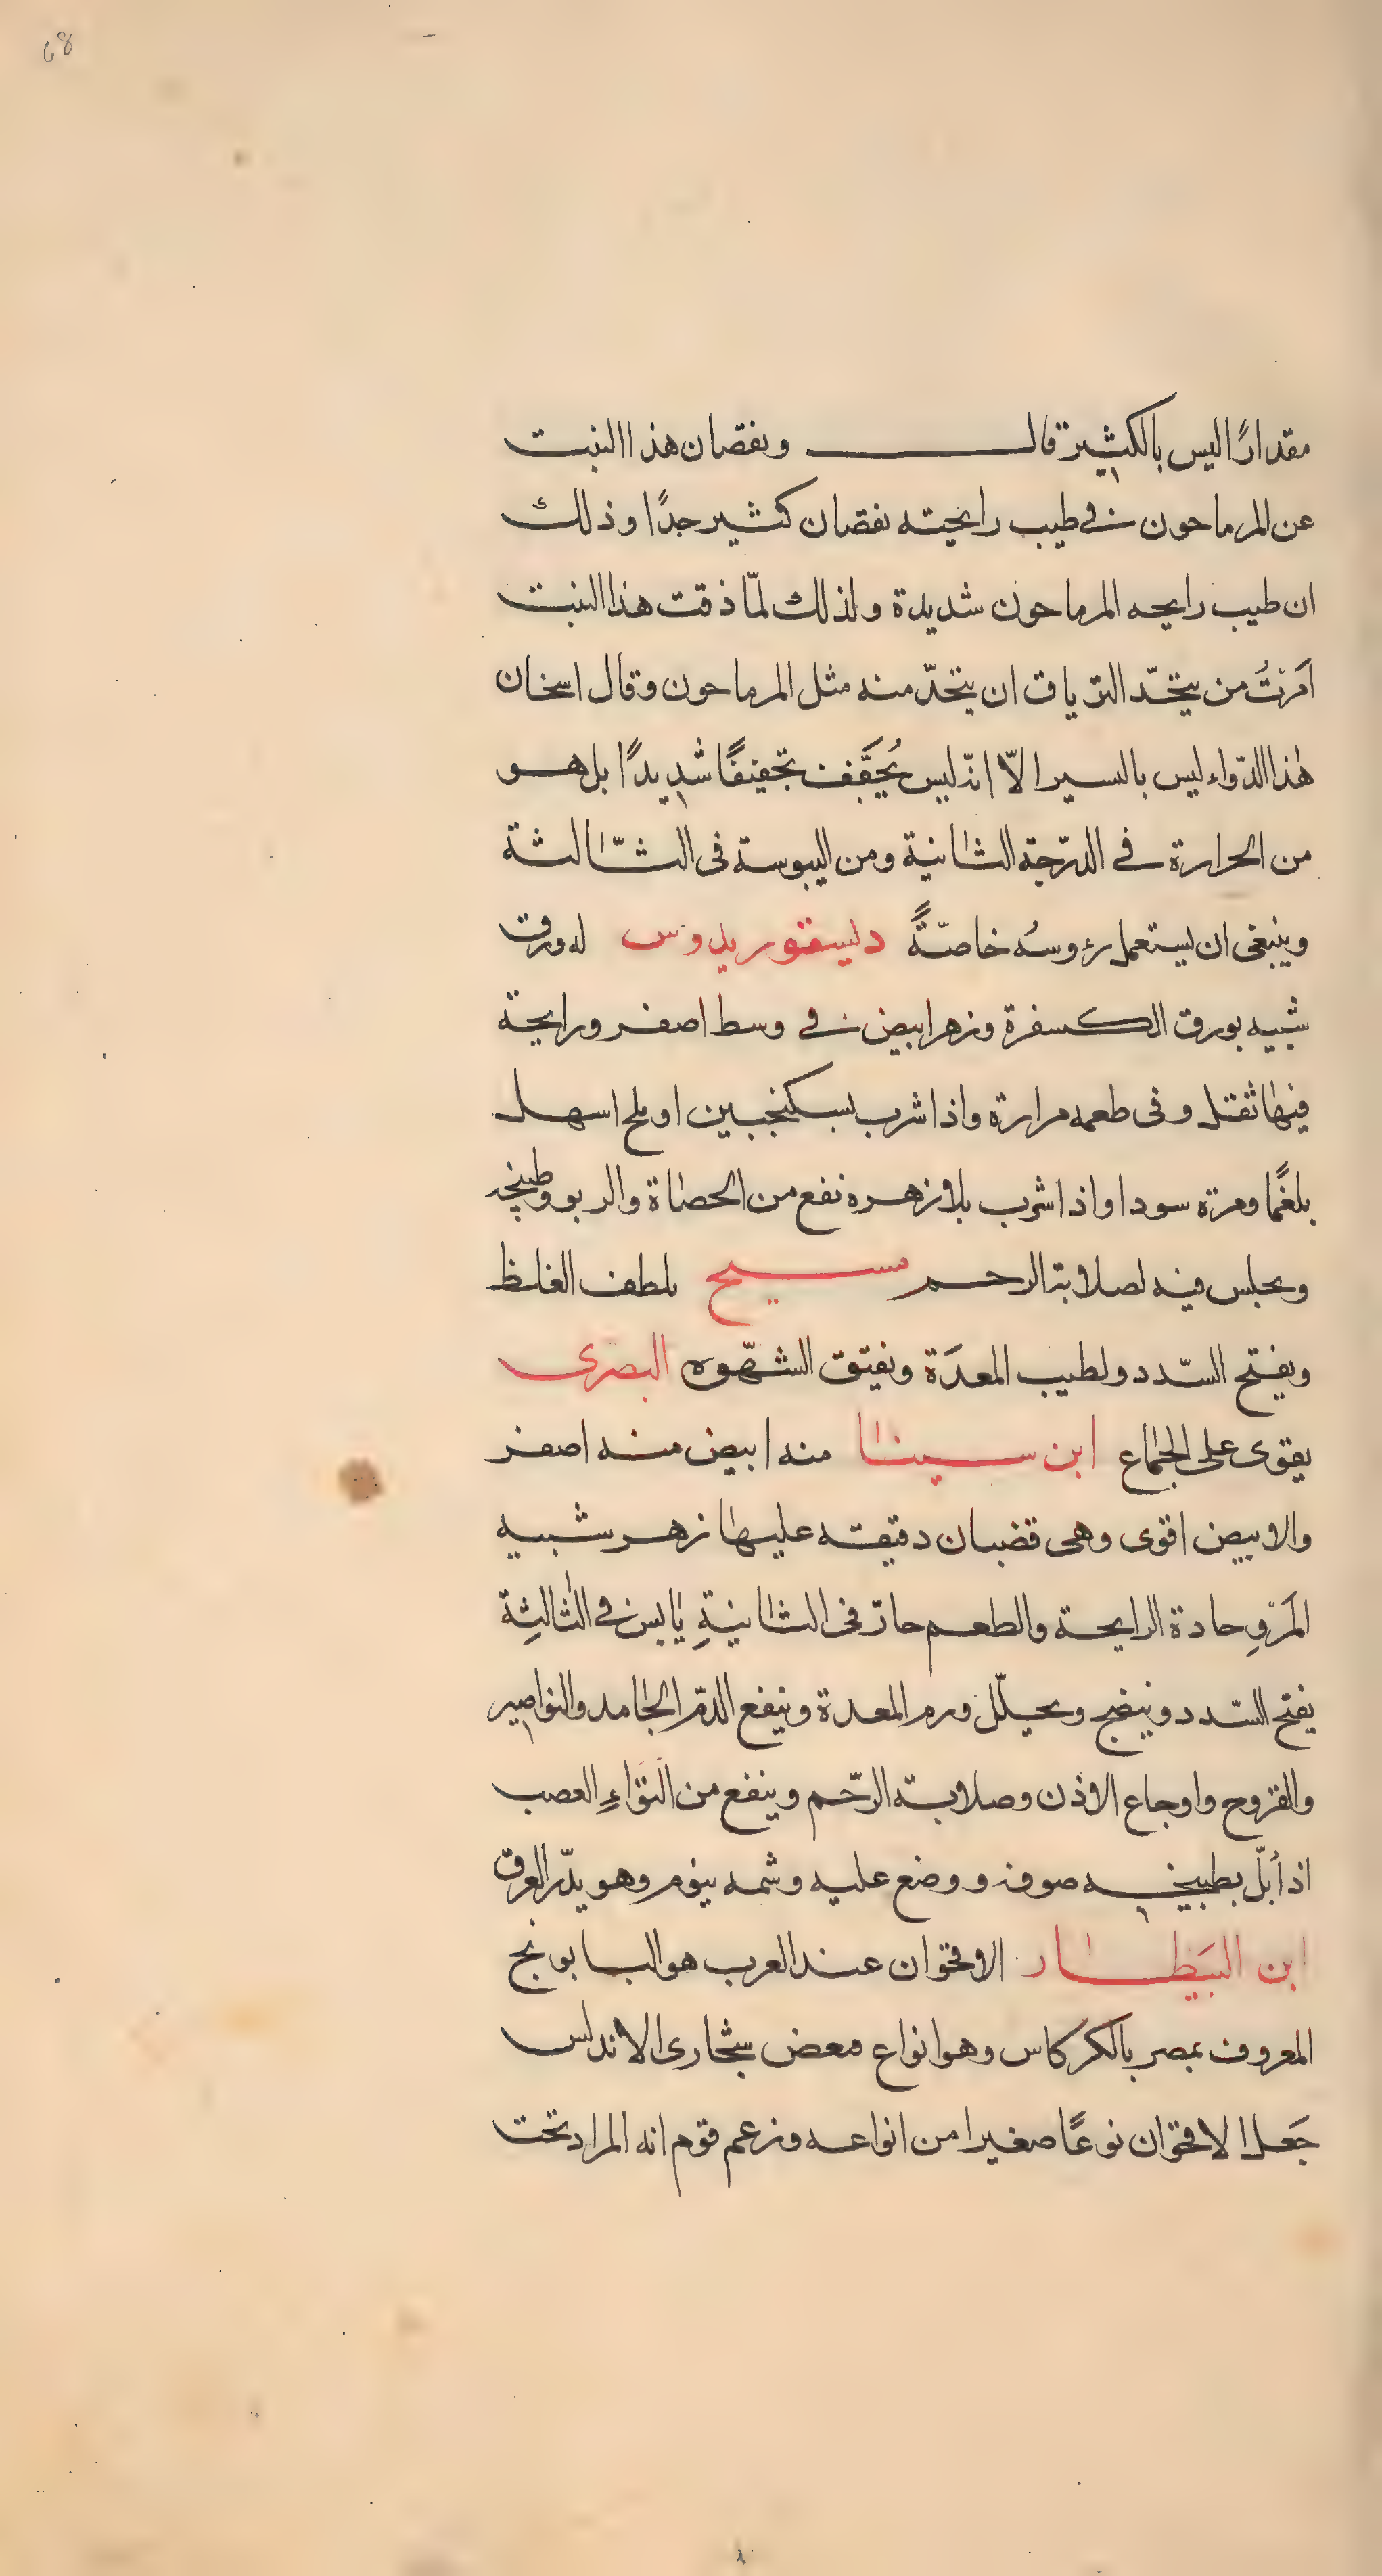 68
مقدارًا ليس بالكثيرة قال ونقصان هذا النبت
عن المرماحون في طيب رايحته نقصان كثير جدًا وذلك
ان طيب رايحه المرماحون شديدة ولذلك لمّا ذقت هذا النبت
اَمَرْتُ من يتخّد الترياق ان يتخدّ منه مثل المرماحون وقال اسخان
هٰذا الدّواء ليس باليسير الاّ انّه ليس يُجَفِّف تجفيفًا شديدًا بل هو
من الحرارة في الدرّجة الثانية ومن اليبوسة في الثّالثة
وينبغى ان يستعمل رءوسُه خاصّةً دليسقوريدوس له ورق
شبيه بورق الكسفرة وزهر ابيض في وسط اصفر ورايحة
فيها ثقل وفى طعمه مرارة واذا شرب بسكنجبين او ملح اسهل
بلغمًا ومرة سودا واذا شرب بلا زهره نفع من الحصاة والربو وطبيخه
ويجلس فيه لصلابة الرحم مسيح يلطف الغلظ
ويفتح السّدد ولطيب المعدَة ويفتق الشهّوه البصرى
يقوى على الجماع ابن سينا منه ابيض منه اصفر
والابيض اقوى وهى قضبان دقيقه عليها زهر شبيه
المَرْوِ حادة الرايحة والطعم حارّ فى الثانيةِ يابس في الثالثِة
يفتح السّدد وينضج ويحلّل ورم المعدة وينفع الدمّ الجامد والنواصير
والقروح واوجاع الاذن وصلابة الرّحم وينفع من التواءِ العصب
اذا بلّ بطبيخه صوفه ووضع عليه وشمه ينوم وهو يدّر العرق
ابن البَيطار الاقحوان عند العرب هو البابونج
المعروف بمصر بالكركاس وهو انواع فبعض شجارى الاندلس
جَعل الاقحوان نوعًا صغيرا من انواعه وزعم قوم انه المراد تحت